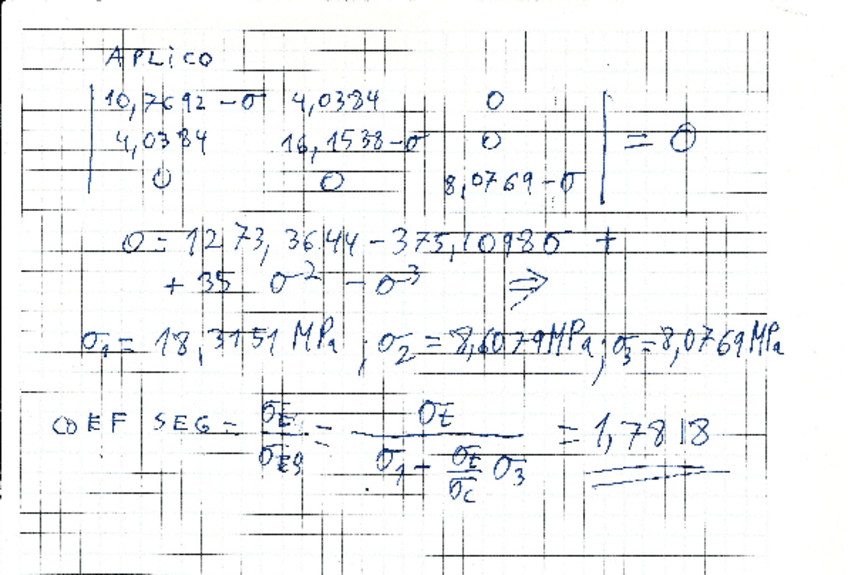 APLICO
| 10,7692 - σ 4,0384 0 |
| 4,0384 16,1538 - σ 0 | = 0
| 0 0 8,0769 - σ |
0 = 1273,3644 - 375,1098σ +
+ 35 σ² - σ³ ⇒
σ₁ = 18,3151 MPa ; σ₂ = 8,6079 MPa ; σ₃ = 8,0769 MPa
COEF SEG = σE / σES = σt / (σ₁ - (σt / σc) σ₃) = 1,7818